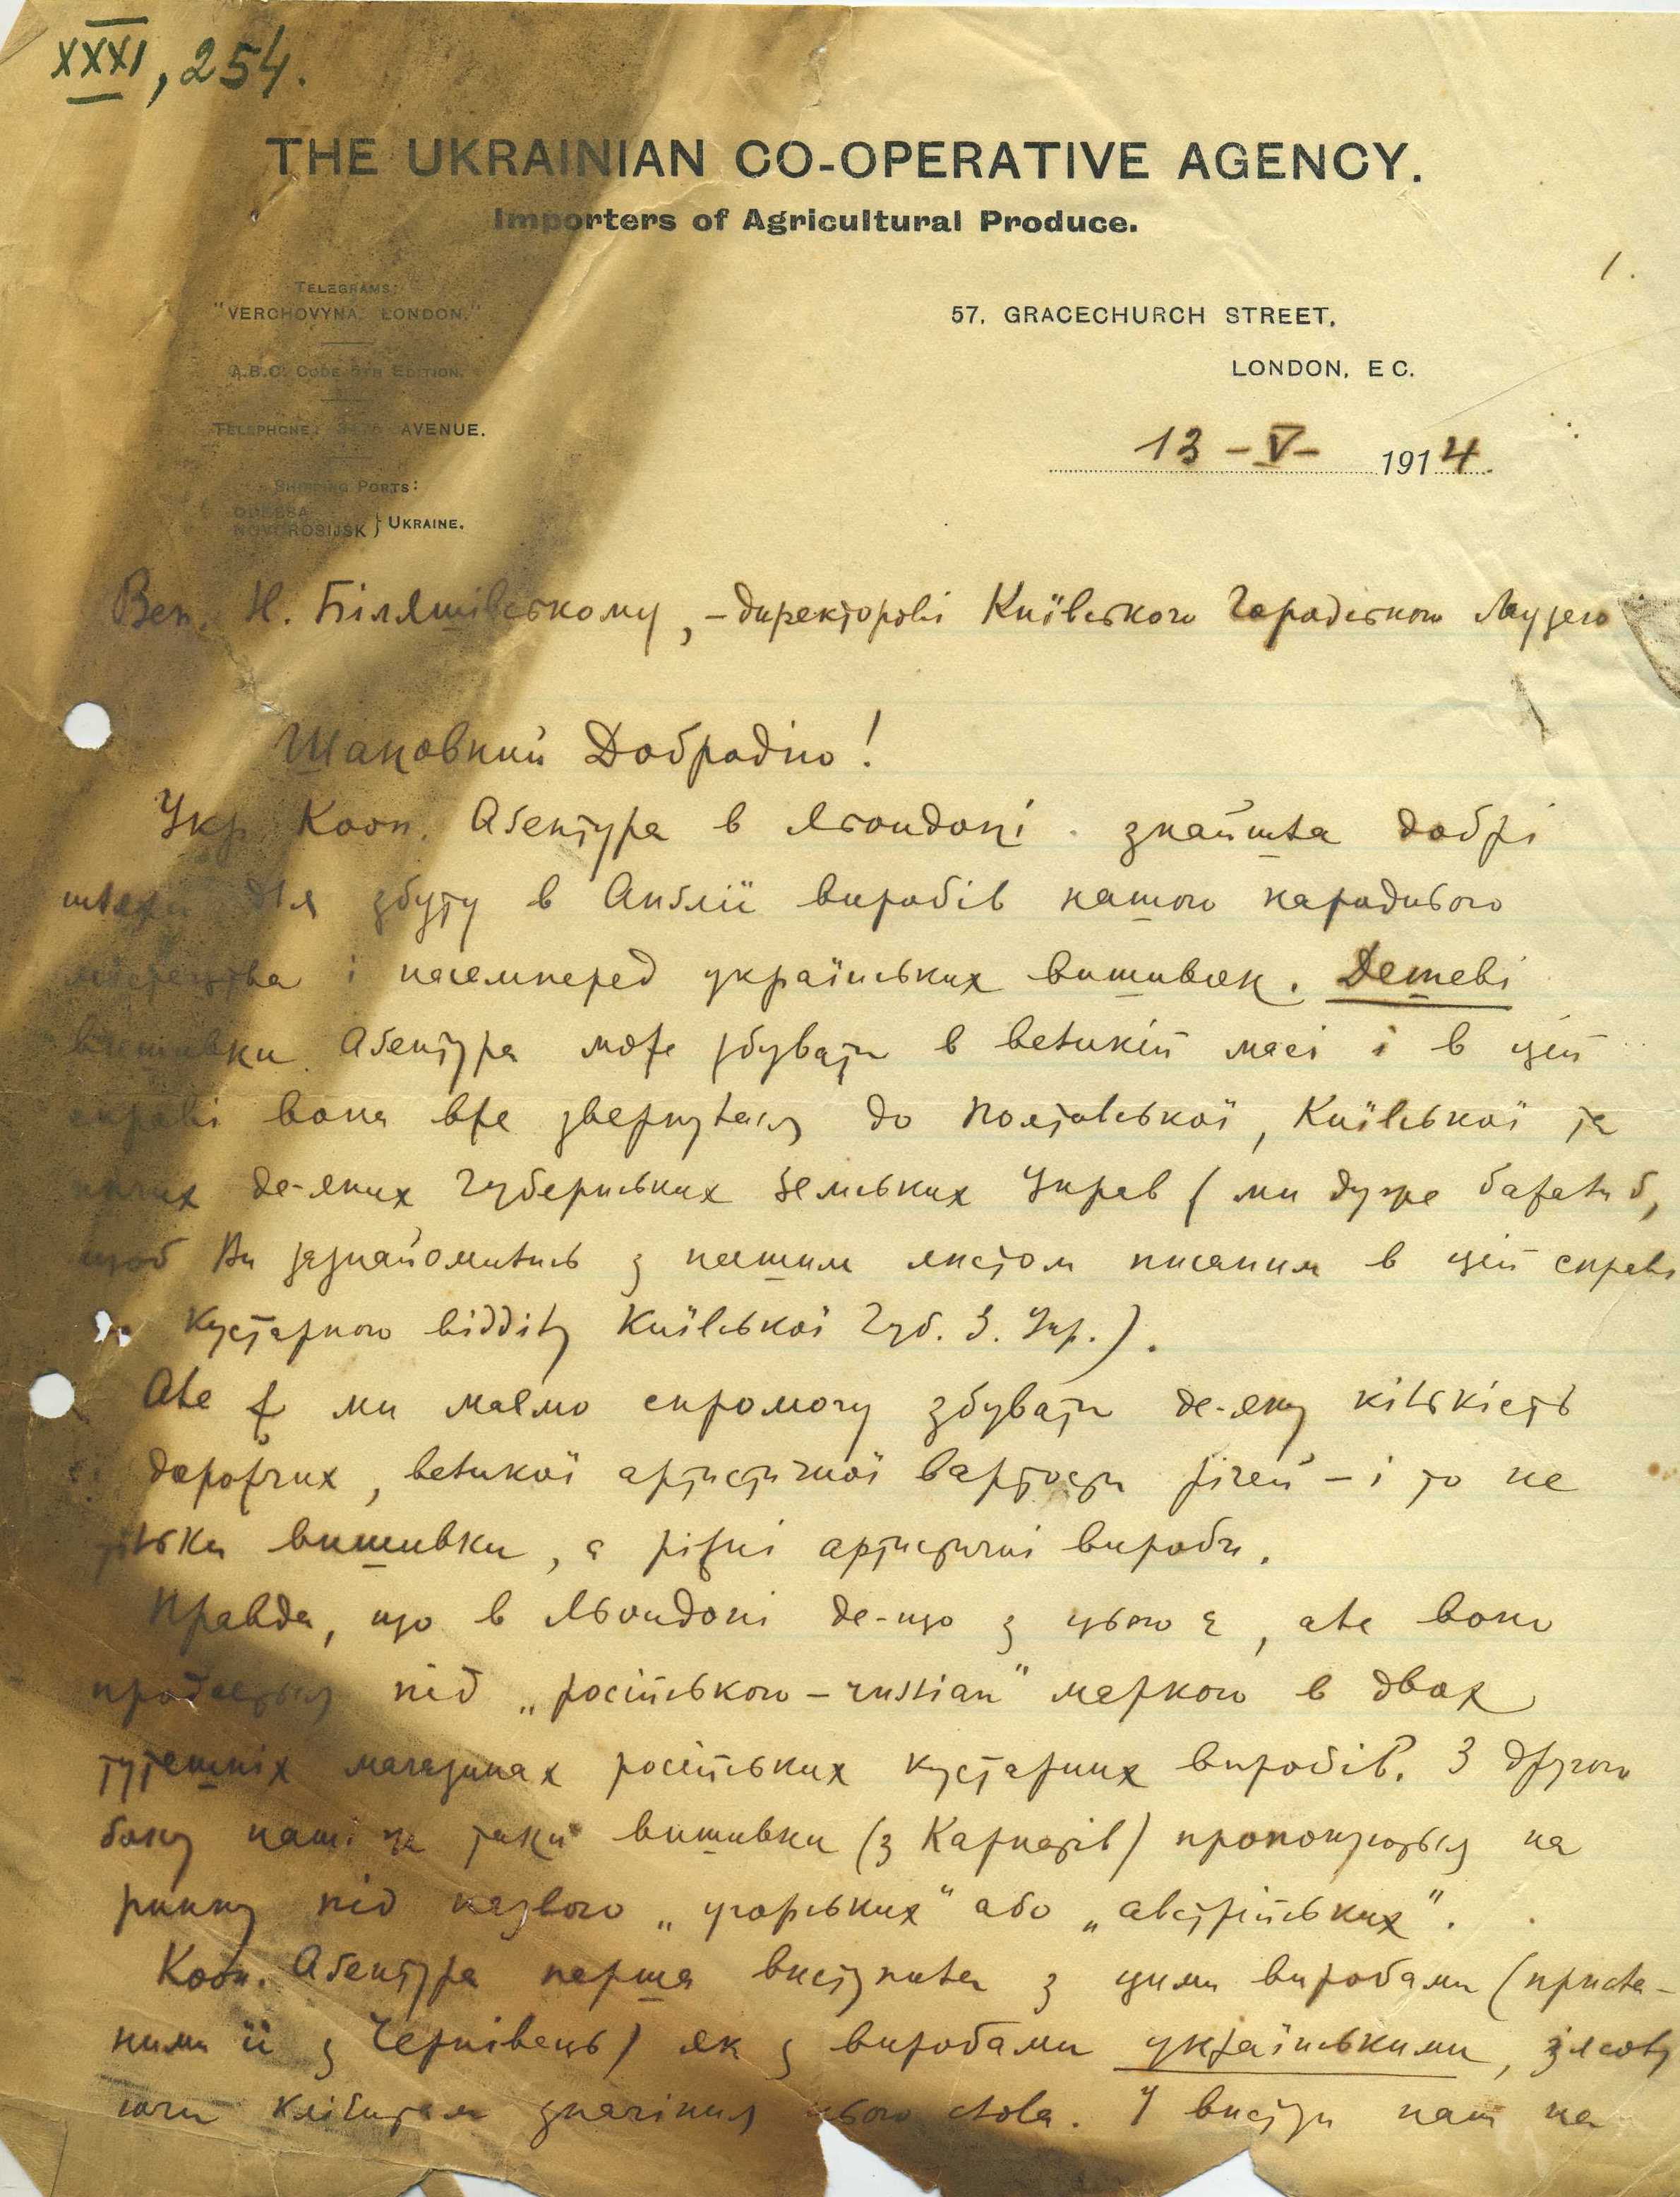 XXXI, 254.
THE UKRAINIAN CO-OPERATIVE AGENCY.
Importers of Agricultural Produce.
1.
TELEGRAMS:
"VERCHOVYNA, LONDON."
57, GRACECHURCH STREET,
A.B.C. CODE 5TH EDITION.
LONDON, E C.
TELEPHONE: AVENUE.
13 – V – 1914.
SHIPPING PORTS:
ODESSA
NOVOROSIJSK } UKRAINE.
Веп. Н. Біляшівському, – директорові Київського Городського Музею
Шановний Добродію!
Укр. Kооп. Аґентура в Льондоні знайшла добрі
шляхи для збуту в Анґлії виробів нашого народнього
мистецтва і насемперед українських вишивок. Дешеві
вишивки Аґентура може збувати в великій масі і в цій
справі вона вже звернулась до Полтавської, Київської та
инших де-яких Губерньських Земських Управ (ми дуже бажали б,
щоб Ви зазнайомились з нашим листом писаним в цій справі
до Кустарного відділу Київської Губ. З. Упр.).
Але ж ми маємо спромогу збувати де-яку кількість
дорожчих, великої артистичної вартости річей – і то не
тільки вишивки, а різні артистичні вироби.
Правда, що в Льондоні де-що з цього є, але воно
продається під „російською – russian" маркою в двох
тутешніх магазинах російських кустарних виробів. З другого
боку наші ж таки вишивки (з Карпатів) пропонуються на
ринку під назвою „угорських" або „австрійських".
Кооп. Аґентура перша виступила з цими виробами (присла-
ними її з Чернівець) як з виробами українськими, зясову
ючи клієнтам значіння цього слова. У виступ наш на